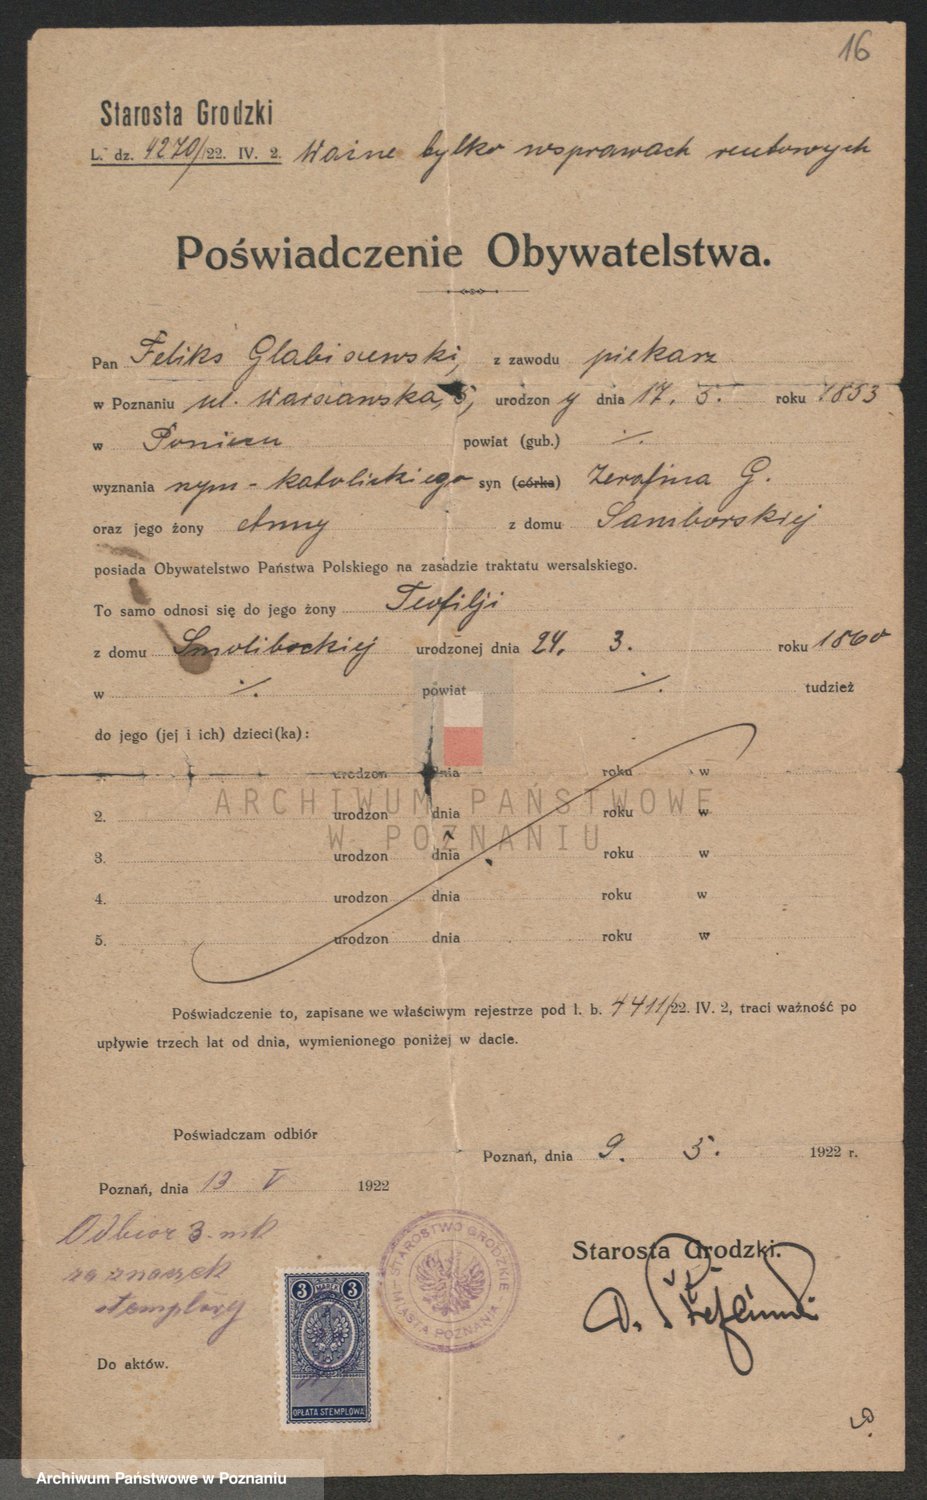 16
Starosta Grodzki
L. dz. 4270/22. IV. 2. Ważne tylko w sprawach rentowych
Poświadczenie Obywatelstwa.
Pan Feliks Glabiszewski, z zawodu piekarz
w Poznaniu ul. Warszawska, 5, urodzony dnia 17. 5. roku 1853
w Poniecu powiat (gub.) ·/.
wyznania rzym-katolickiego syn (córka) Zerafina G.
oraz jego żony Anny z domu Samborskiej
posiada Obywatelstwo Państwa Polskiego na zasadzie traktatu wersalskiego.
To samo odnosi się do jego żony Teofilji
z domu Smolibockiej urodzonej dnia 24. 3. roku 1860
w ·/. powiat ·/. tudzież
do jego (jej i ich) dzieci(ka):
urodzon dnia roku w
2. urodzon dnia roku w
ARCHIWUM PAŃSTWOWE
W POZNANIU
3. urodzon dnia roku w
4. urodzon dnia roku w
5. urodzon dnia roku w
Poświadczenie to, zapisane we właściwym rejestrze pod l. b. 4411/22. IV. 2, traci ważność po
upływie trzech lat od dnia, wymienionego poniżej w dacie.
Poświadczam odbiór
Poznań, dnia 9. 5. 1922 r.
Poznań, dnia 13 V 1922
Odbior 3 mk
za znaczek
stemplowy
STAROSTWO GRODZKIE
MIASTA POZNANIA
Starosta Grodzki.
3 MAREK 3
OPŁATA STEMPLOWA
Do aktów.
Archiwum Państwowe w Poznaniu